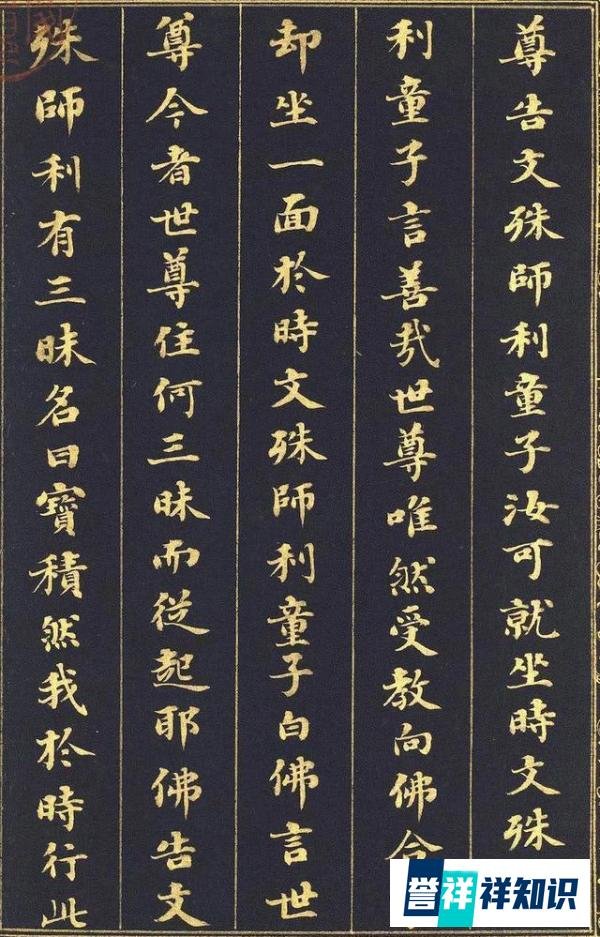 尊告文殊師利童子汝可就坐時文殊
利童子言善哉世尊唯然受教向佛合
却坐一面於時文殊師利童子白佛言世
尊今者世尊住何三昧而從起耶佛告文
殊師利有三昧名曰寶積然我於時行此
誉祥祥知识